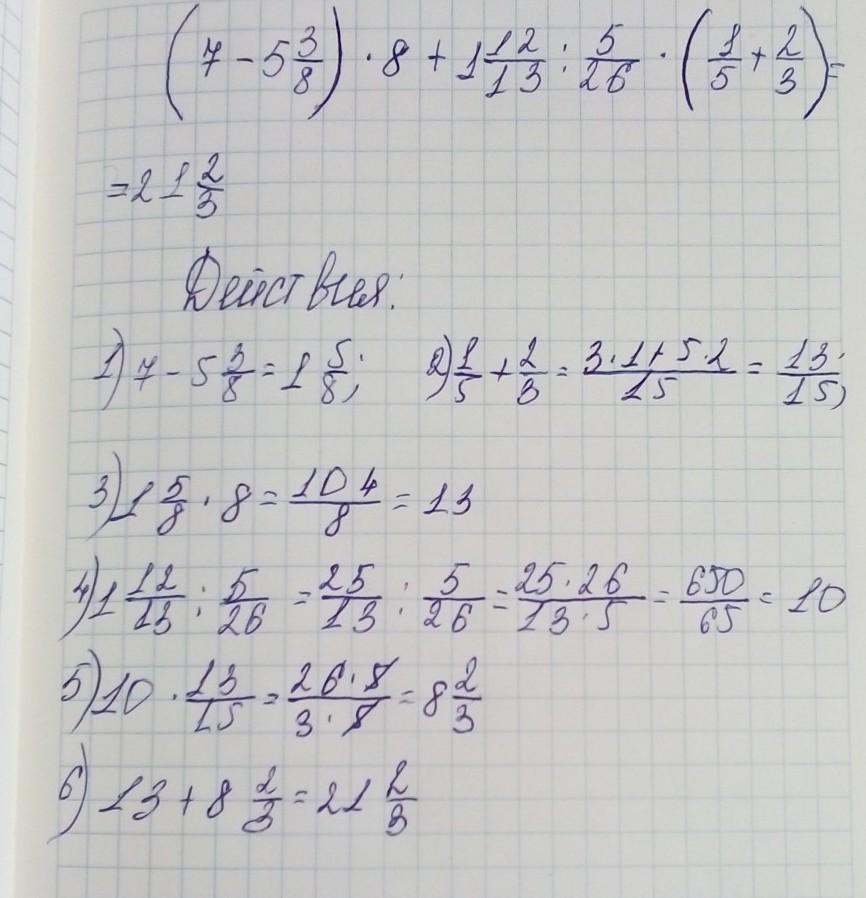 (7 - 5 3/8) · 8 + 1 12/13 : 5/26 · (1/5 + 2/3) =
= 21 2/3
Действия:
1) 7 - 5 3/8 = 1 5/8; 2) 1/5 + 2/3 = (3·1+5·2)/15 = 13/15;
3) 1 5/8 · 8 = 104/8 = 13
4) 1 12/13 : 5/26 = 25/13 : 5/26 = (25·26)/(13·5) = 650/65 = 10
5) 10 · 13/15 = (26·5)/(3·5) = 8 2/3
6) 13 + 8 2/3 = 21 2/3